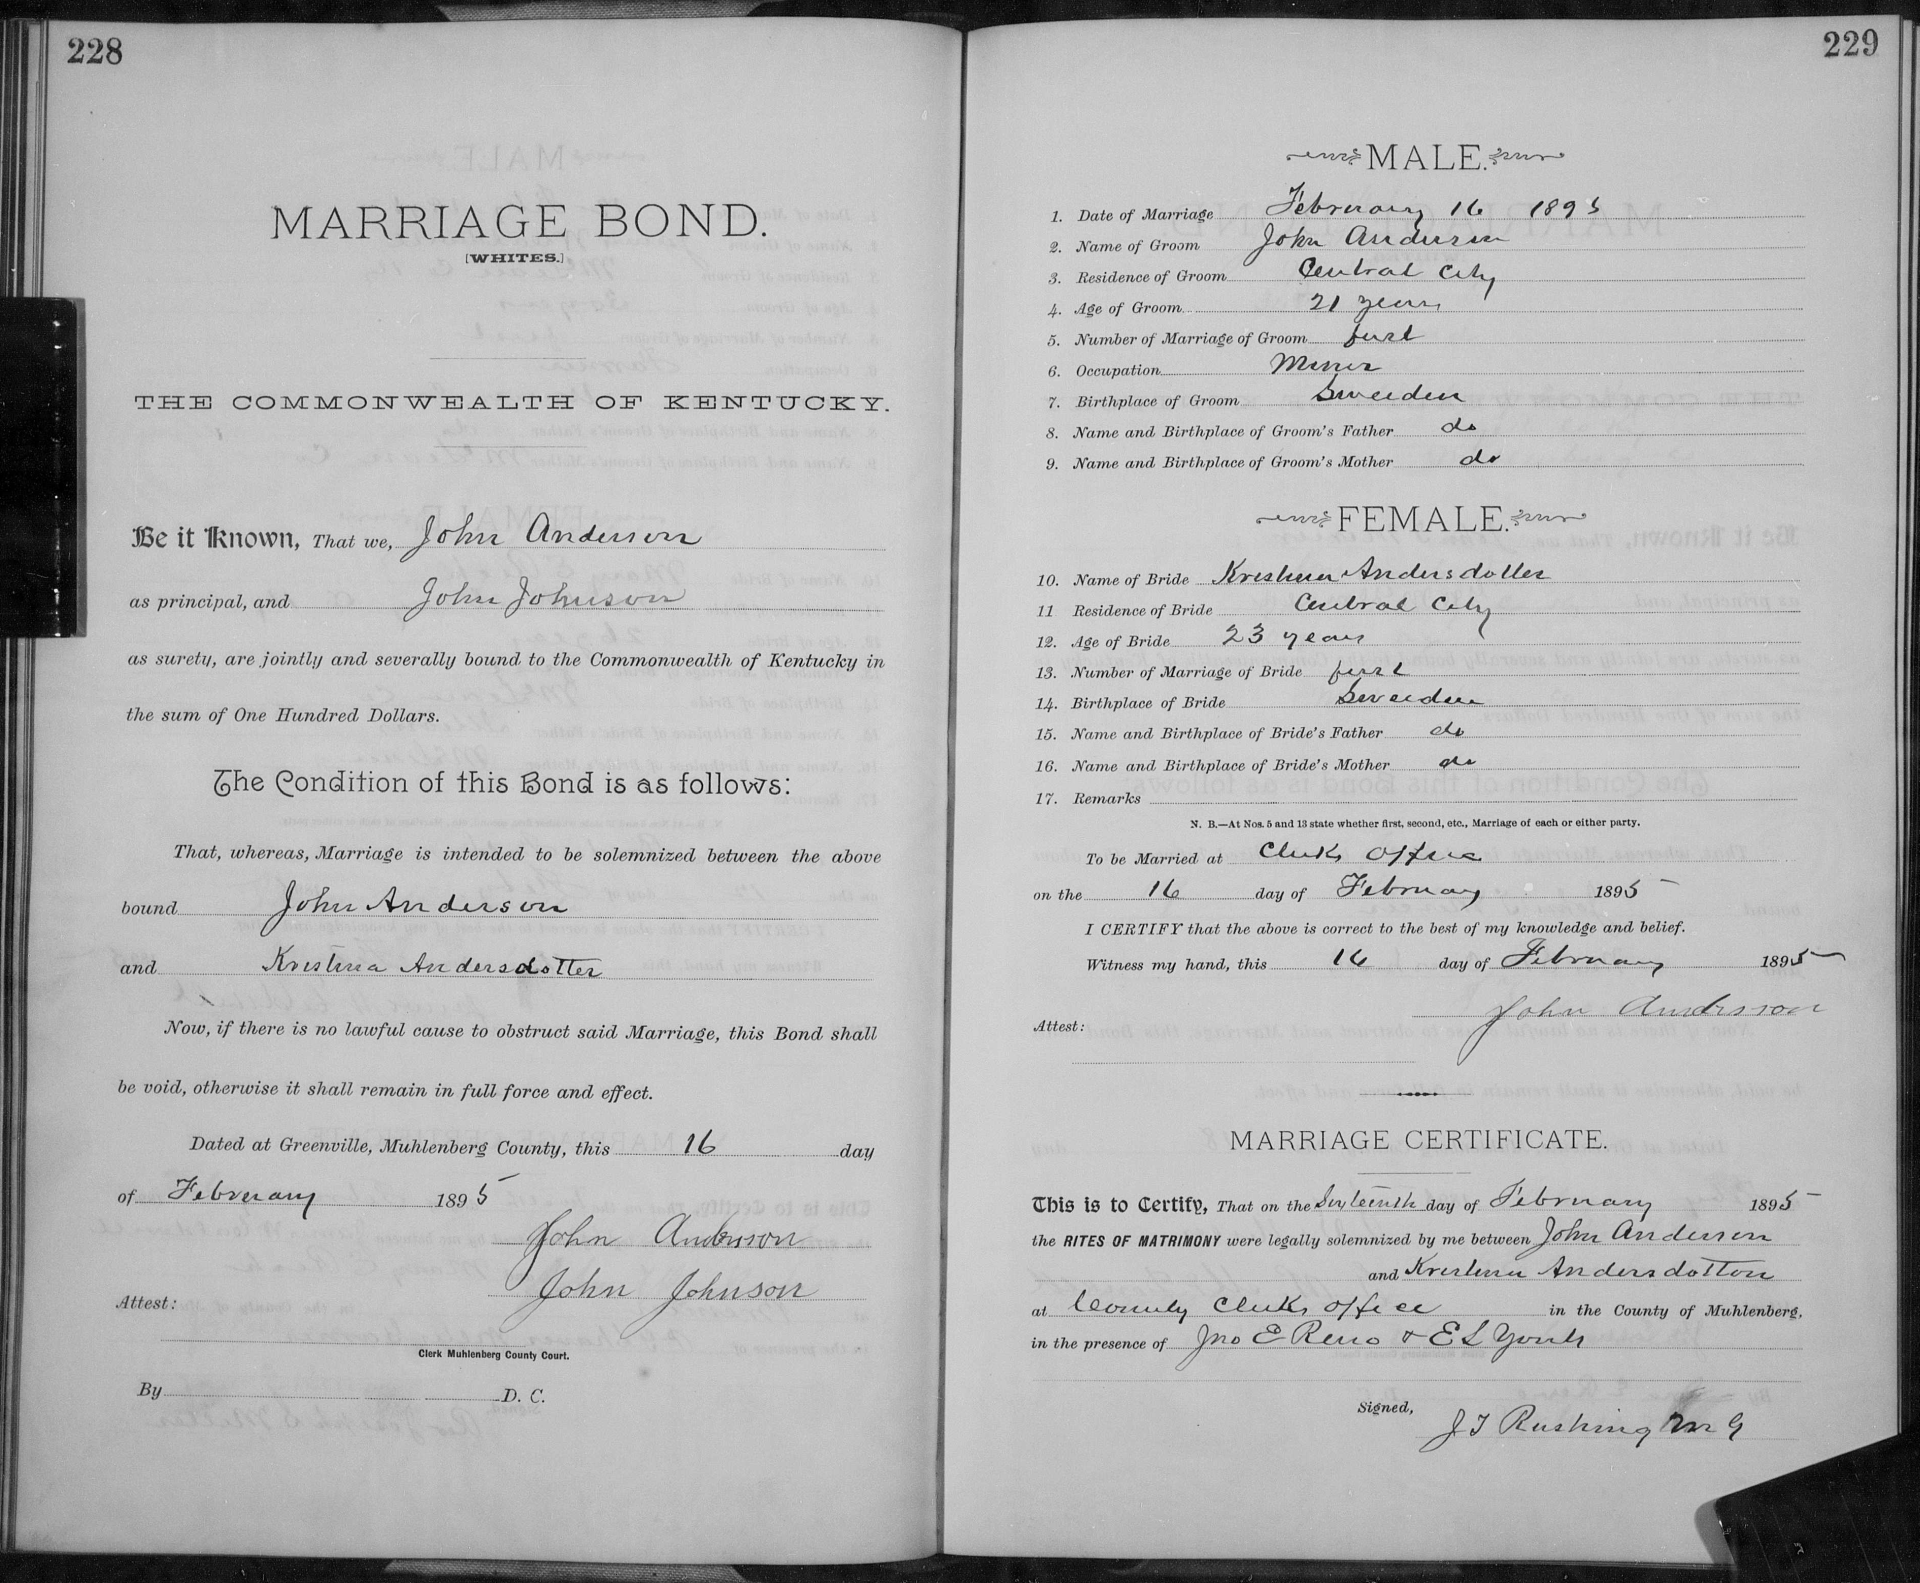 228
MARRIAGE BOND.
[WHITES.]
THE COMMONWEALTH OF KENTUCKY.
Be it Known, That we, John Anderson
as principal, and John Johnson
as surety, are jointly and severally bound to the Commonwealth of Kentucky in
the sum of One Hundred Dollars.
The Condition of this Bond is as follows:
That, whereas, Marriage is intended to be solemnized between the above
bound John Anderson
and Kristina Andersdotter
Now, if there is no lawful cause to obstruct said Marriage, this Bond shall
be void, otherwise it shall remain in full force and effect.
Dated at Greenville, Muhlenberg County, this 16 day
of February 1895
John Andersson
John Johnson
Attest:
Clerk Muhlenberg County Court.
By D. C.
229
MALE.
1. Date of Marriage February 16 1895
2. Name of Groom John Anderson
3. Residence of Groom Central City
4. Age of Groom 21 years
5. Number of Marriage of Groom first
6. Occupation Miner
7. Birthplace of Groom Sweeden
8. Name and Birthplace of Groom's Father do
9. Name and Birthplace of Groom's Mother do
FEMALE.
10. Name of Bride Kristina Andersdotter
11 Residence of Bride Central City
12. Age of Bride 23 years
13. Number of Marriage of Bride first
14. Birthplace of Bride Sweeden
15. Name and Birthplace of Bride's Father do
16. Name and Birthplace of Bride's Mother do
17. Remarks
N. B.—At Nos. 5 and 13 state whether first, second, etc., Marriage of each or either party.
To be Married at Clerks Office
on the 16 day of February 1895
I CERTIFY that the above is correct to the best of my knowledge and belief.
Witness my hand, this 16 day of February 1895
John Andersson
Attest:
MARRIAGE CERTIFICATE.
This is to Certify, That on the Sixteenth day of February 1895
the RITES OF MATRIMONY were legally solemnized by me between John Anderson
and Kristina Andersdotton
at County Clerks office in the County of Muhlenberg,
in the presence of Jno E Reno & E L Yonts
Signed,
J T Rushing M G